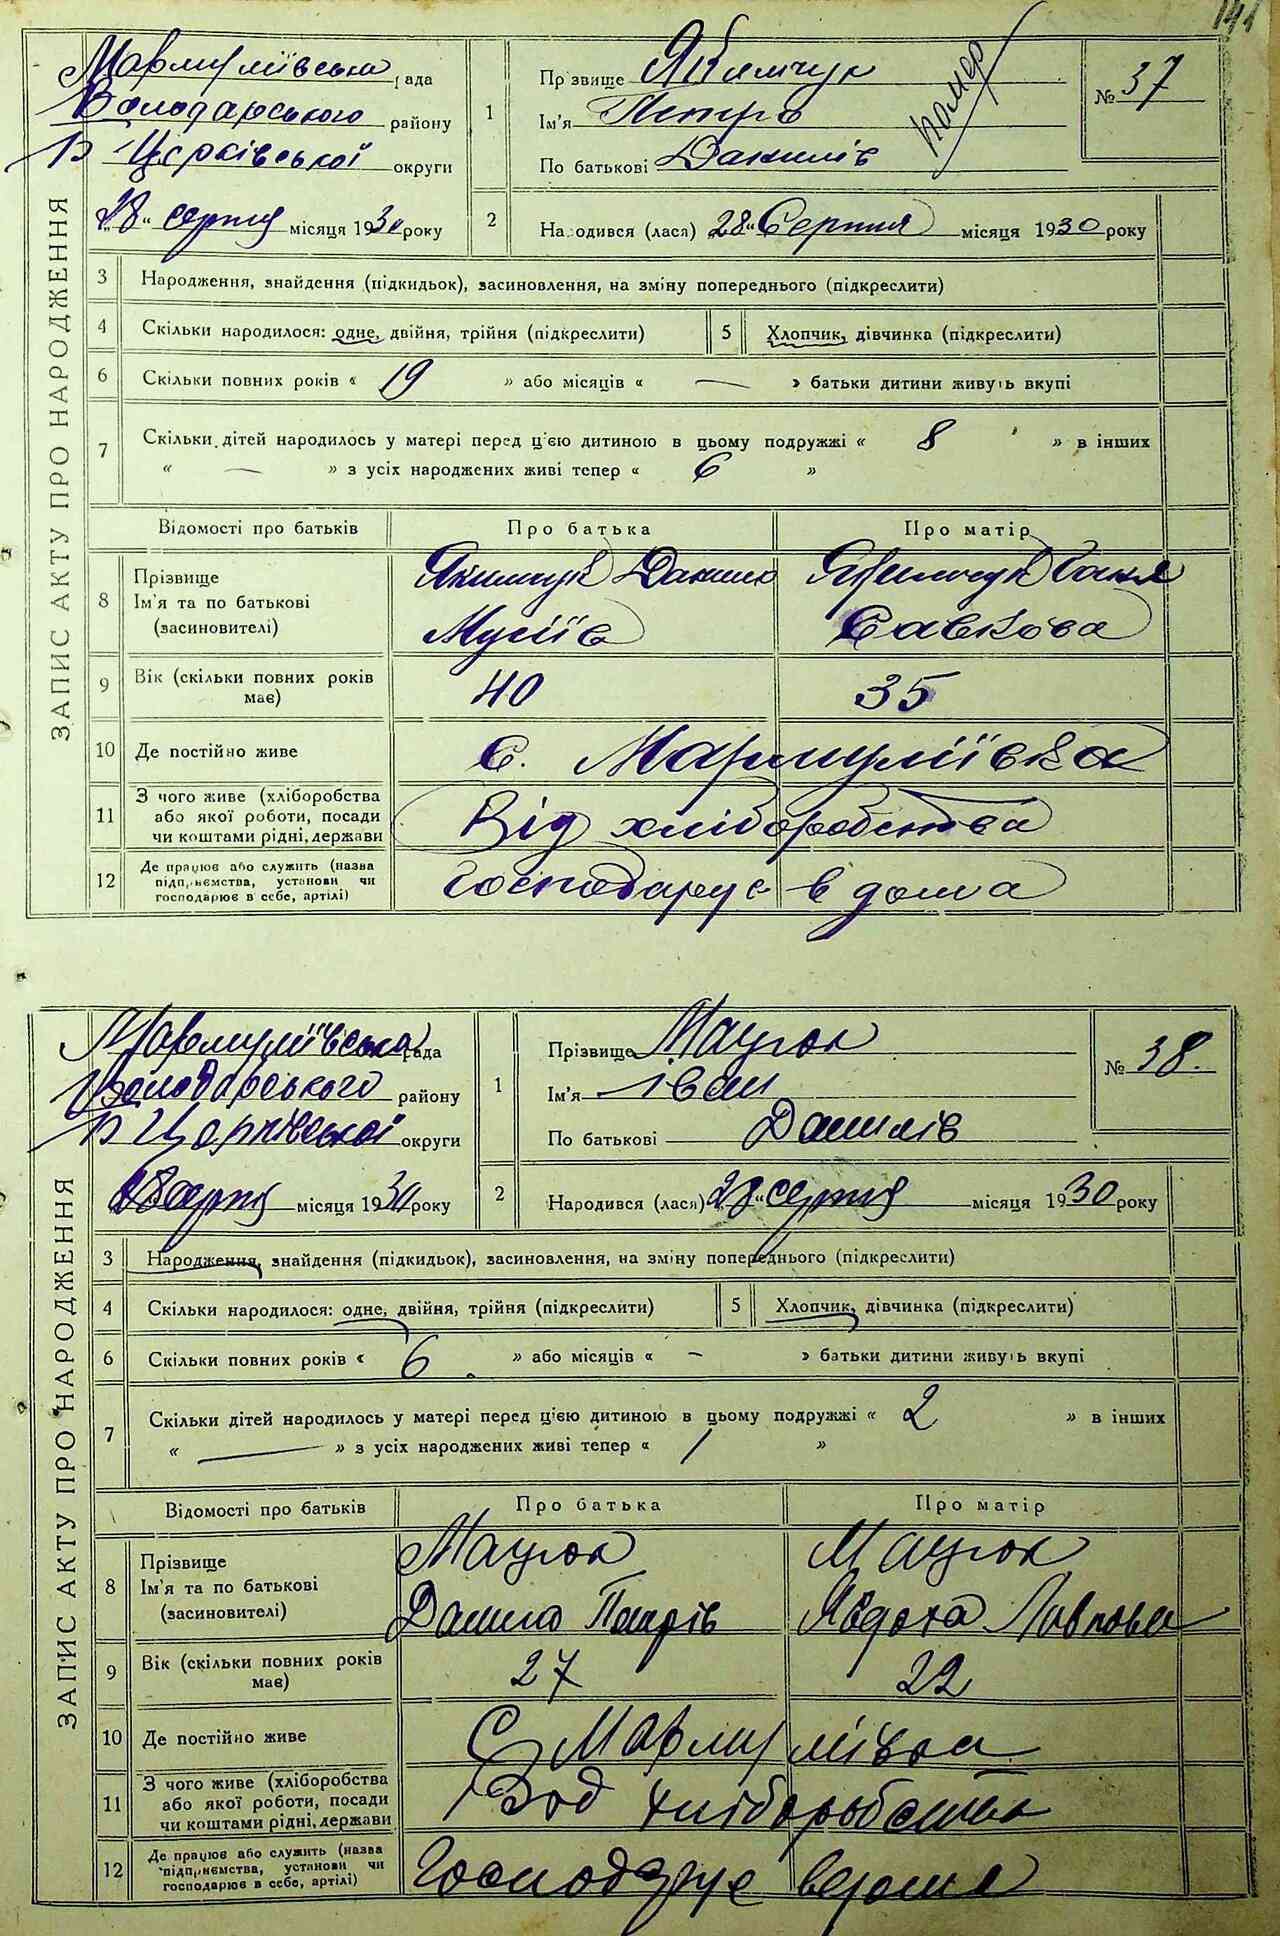 141
ЗАПИС АКТУ ПРО НАРОДЖЕННЯ
Мармуліївська рада
Володарського району
Б Церківської округи
"28" серпня місяця 1930 року
1
Прізвище Якимчук
Ім'я Петро
По батькові Данилів
помер
№ 37
2
Народився (лася) 28" Серпня місяця 1930 року
3 Народження, знайдення (підкидьок), засиновлення, на зміну попереднього (підкреслити)
4 Скільки народилося: одне, двійня, трійня (підкреслити) 5 Хлопчик, дівчинка (підкреслити)
6 Скільки повних років « 19 » або місяців « — » батьки дитини живуть вкупі
7 Скільки дітей народилось у матері перед ц'єю дитиною в цьому подружжі « 8 » в інших
« — » з усіх народжених живі тепер « 6 »
Відомості про батьків Про батька Про матір
8 Прізвище
Ім'я та по батькові
(засиновителі)
Якимчук Данило
Мусіїв
Якимчук Ганя
Савкова
9 Вік (скільки повних років має) 40 35
10 Де постійно живе С. Мармуліївка
11 З чого живе (хліборобства
або якої роботи, посади
чи коштами рідні, держави
Від хліборобства
12 Де працює або служить (назва
підприємства, установи чи
господарює в себе, артілі)
Господарує в дома
ЗАПИС АКТУ ПРО НАРОДЖЕННЯ
Мармуліївська рада
Володарського району
Б Церківської округи
28 серпня місяця 1930 року
1
Прізвище Мацюк
Ім'я Іван
По батькові Данилів
№ 38.
2
Народився (лася) 28" серпня місяця 1930 року
3 Народження, знайдення (підкидьок), засиновлення, на зміну попереднього (підкреслити)
4 Скільки народилося: одне, двійня, трійня (підкреслити) 5 Хлопчик, дівчинка (підкреслити)
6 Скільки повних років « 6 » або місяців « – » батьки дитини живуть вкупі
7 Скільки дітей народилось у матері перед ц'єю дитиною в цьому подружжі « 2 » в інших
« — » з усіх народжених живі тепер « 1 »
Відомості про батьків Про батька Про матір
8 Прізвище
Ім'я та по батькові
(засиновителі)
Мацюк
Данило Петрів
Мацюк
Явдоха Павлова
9 Вік (скільки повних років має) 27 22
10 Де постійно живе С Мармулівка
11 З чого живе (хліборобства
або якої роботи, посади
чи коштами рідні, держави
Зод хліборобства
12 Де працює або служить (назва
підприємства, установи чи
господарює в себе, артілі)
Господарує